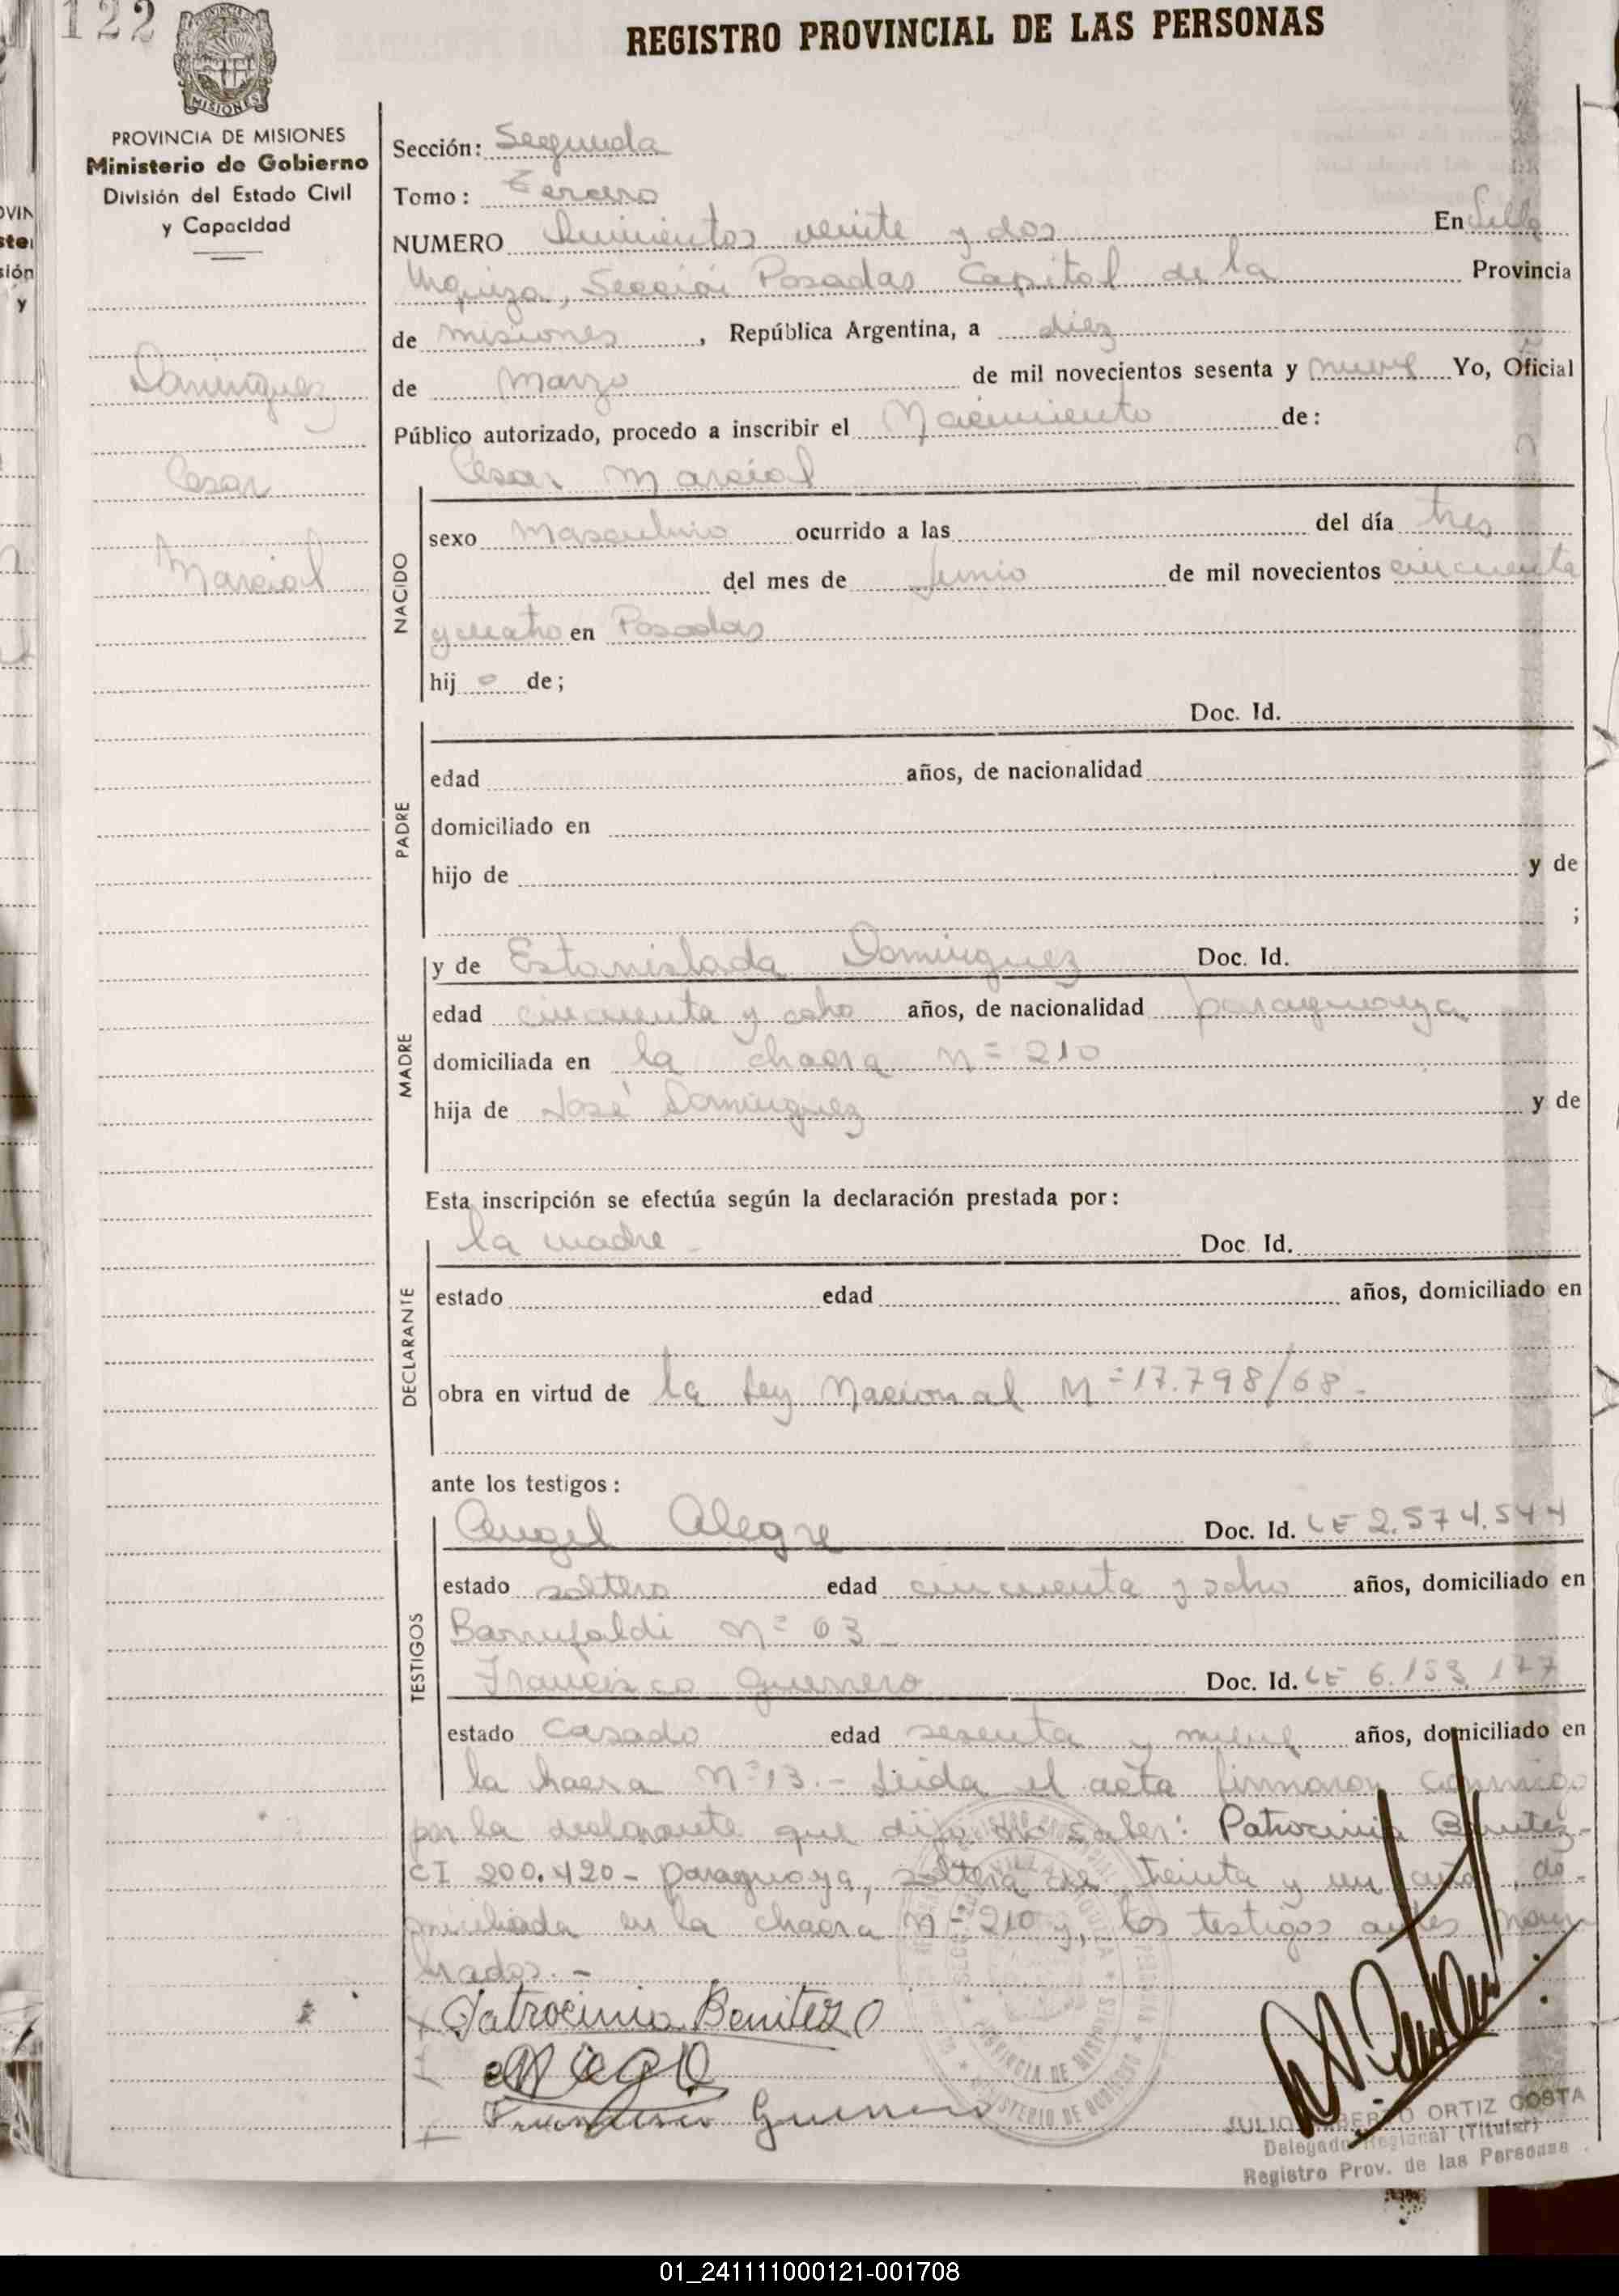 122
REGISTRO PROVINCIAL DE LAS PERSONAS
MISIONES
PROVINCIA DE MISIONES
Ministerio de Gobierno
División del Estado Civil
y Capacidad
Dominguez
Cesar
Marcial
Sección: Segunda
Tomo: Tercero
NUMERO Quinientos veinte y dos En Villa
Urquiza, Sección Posadas Capital de la Provincia
de misiones, República Argentina, a diez
de Marzo de mil novecientos sesenta y nueve Yo, Oficial
Público autorizado, procedo a inscribir el Nacimiento de:
Cesar Marcial
NACIDO
sexo Masculino ocurrido a las del día tres
del mes de Junio de mil novecientos cincuenta
y cuatro en Posadas
hij o de;
PADRE
Doc. Id.
edad años, de nacionalidad
domiciliado en
hijo de y de
;
MADRE
y de Estanislada Dominguez Doc. Id.
edad cincuenta y ocho años, de nacionalidad paraguaya
domiciliada en la chacra Nº 210
hija de José Dominguez y de
Esta inscripción se efectúa según la declaración prestada por:
DECLARANTE
la madre - Doc Id.
estado edad años, domiciliado en
obra en virtud de la Ley Nacional Nº 17.798/68.-
ante los testigos:
TESTIGOS
Angel Alegre Doc. Id. LE 2.574.544
estado soltero edad cincuenta y ocho años, domiciliado en
Barrufaldi Nº 63
Francisco Guerrero Doc. Id. LE 6.153.177
estado casado edad sesenta y nueve años, domiciliado en
la hacra Nº 13.- Leida el acta firmaron conmigo
por la declarante que dijo no saber: Patrocinia Benitez-
CI 200.420- paraguaya, soltera de treinta y un años, do-
miciliada en la chacra Nº 210 y, los testigos antes nom-
brados.-
Patrocinia Benitez
Francisco Guerrero
JULIO ALBERTO ORTIZ COSTA
Delegado Regional (Titular)
Registro Prov. de las Personas
01_241111000121-001708